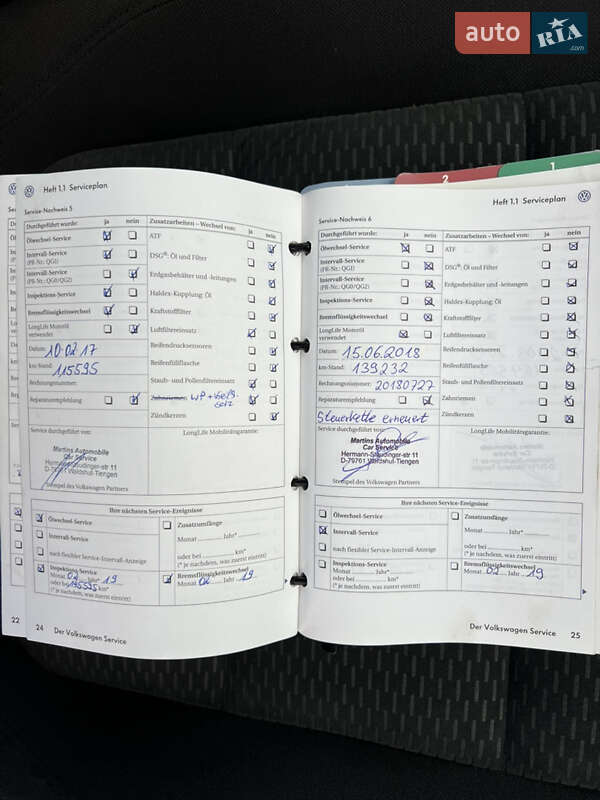 auto RIA .com
2
1
Heft 1.1 Serviceplan
Service-Nachweis 5
Durchgeführt wurde: ja nein
Ölwechsel-Service
Intervall-Service
(PR-Nr.: QG1)
Intervall-Service
(PR-Nr.: QG0/QG2)
Inspektions-Service
Bremsflüssigkeitswechsel
LongLife Motoröl
verwendet
Datum: 10.02.17
km-Stand: 115595
Rechnungsnummer:
Reparaturempfehlung
Zusatzarbeiten – Wechsel von: ja nein
ATF
DSG®: Öl und Filter
Erdgasbehälter und -leitungen
Haldex-Kupplung: Öl
Kraftstofffilter
Luftfiltereinsatz
Reifendrucksensoren
Reifenfüllflasche
Staub- und Pollenfiltereinsatz
Zahnriemen
Zündkerzen
Service durchgeführt von:
LongLife Mobilitätsgarantie:
Martins Automobile
Car Service
Hermann-Staudinger-str 11
D-79761 Waldshut-Tiengen
Stempel des Volkswagen Partners
Ihre nächsten Service-Ereignisse
Ölwechsel-Service
Intervall-Service
nach flexibler Service-Intervall-Anzeige
Inspektions-Service
Monat 02 Jahr* 19
oder bei 195595 km*
(* je nachdem, was zuerst eintritt)
Zusatzumfänge
Monat Jahr*
oder bei km*
(* je nachdem, was zuerst eintritt)
Bremsflüssigkeitswechsel
Monat 02 Jahr 19
22
24 Der Volkswagen Service
Heft 1.1 Serviceplan
Service-Nachweis 6
Durchgeführt wurde: ja nein
Ölwechsel-Service
Intervall-Service
(PR-Nr.: QG1)
Intervall-Service
(PR-Nr.: QG0/QG2)
Inspektions-Service
Bremsflüssigkeitswechsel
LongLife Motoröl
verwendet
Datum: 15.06.2018
km-Stand: 139232
Rechnungsnummer: 20180727
Reparaturempfehlung
Steuerkette erneuert
Zusatzarbeiten – Wechsel von: ja nein
ATF
DSG®: Öl und Filter
Erdgasbehälter und -leitungen
Haldex-Kupplung: Öl
Kraftstofffilter
Luftfiltereinsatz
Reifendrucksensoren
Reifenfüllflasche
Staub- und Pollenfiltereinsatz
Zahnriemen
Zündkerzen
Service durchgeführt von:
LongLife Mobilitätsgarantie:
Martins Automobile
Car Service
Hermann-Staudinger-str 11
D-79761 Waldshut-Tiengen
Stempel des Volkswagen Partners
Ihre nächsten Service-Ereignisse
Ölwechsel-Service
Intervall-Service
nach flexibler Service-Intervall-Anzeige
Inspektions-Service
Monat Jahr*
oder bei km*
(* je nachdem, was zuerst eintritt)
Zusatzumfänge
Monat Jahr*
oder bei km*
(* je nachdem, was zuerst eintritt)
Bremsflüssigkeitswechsel
Monat 02 Jahr 19
Der Volkswagen Service 25